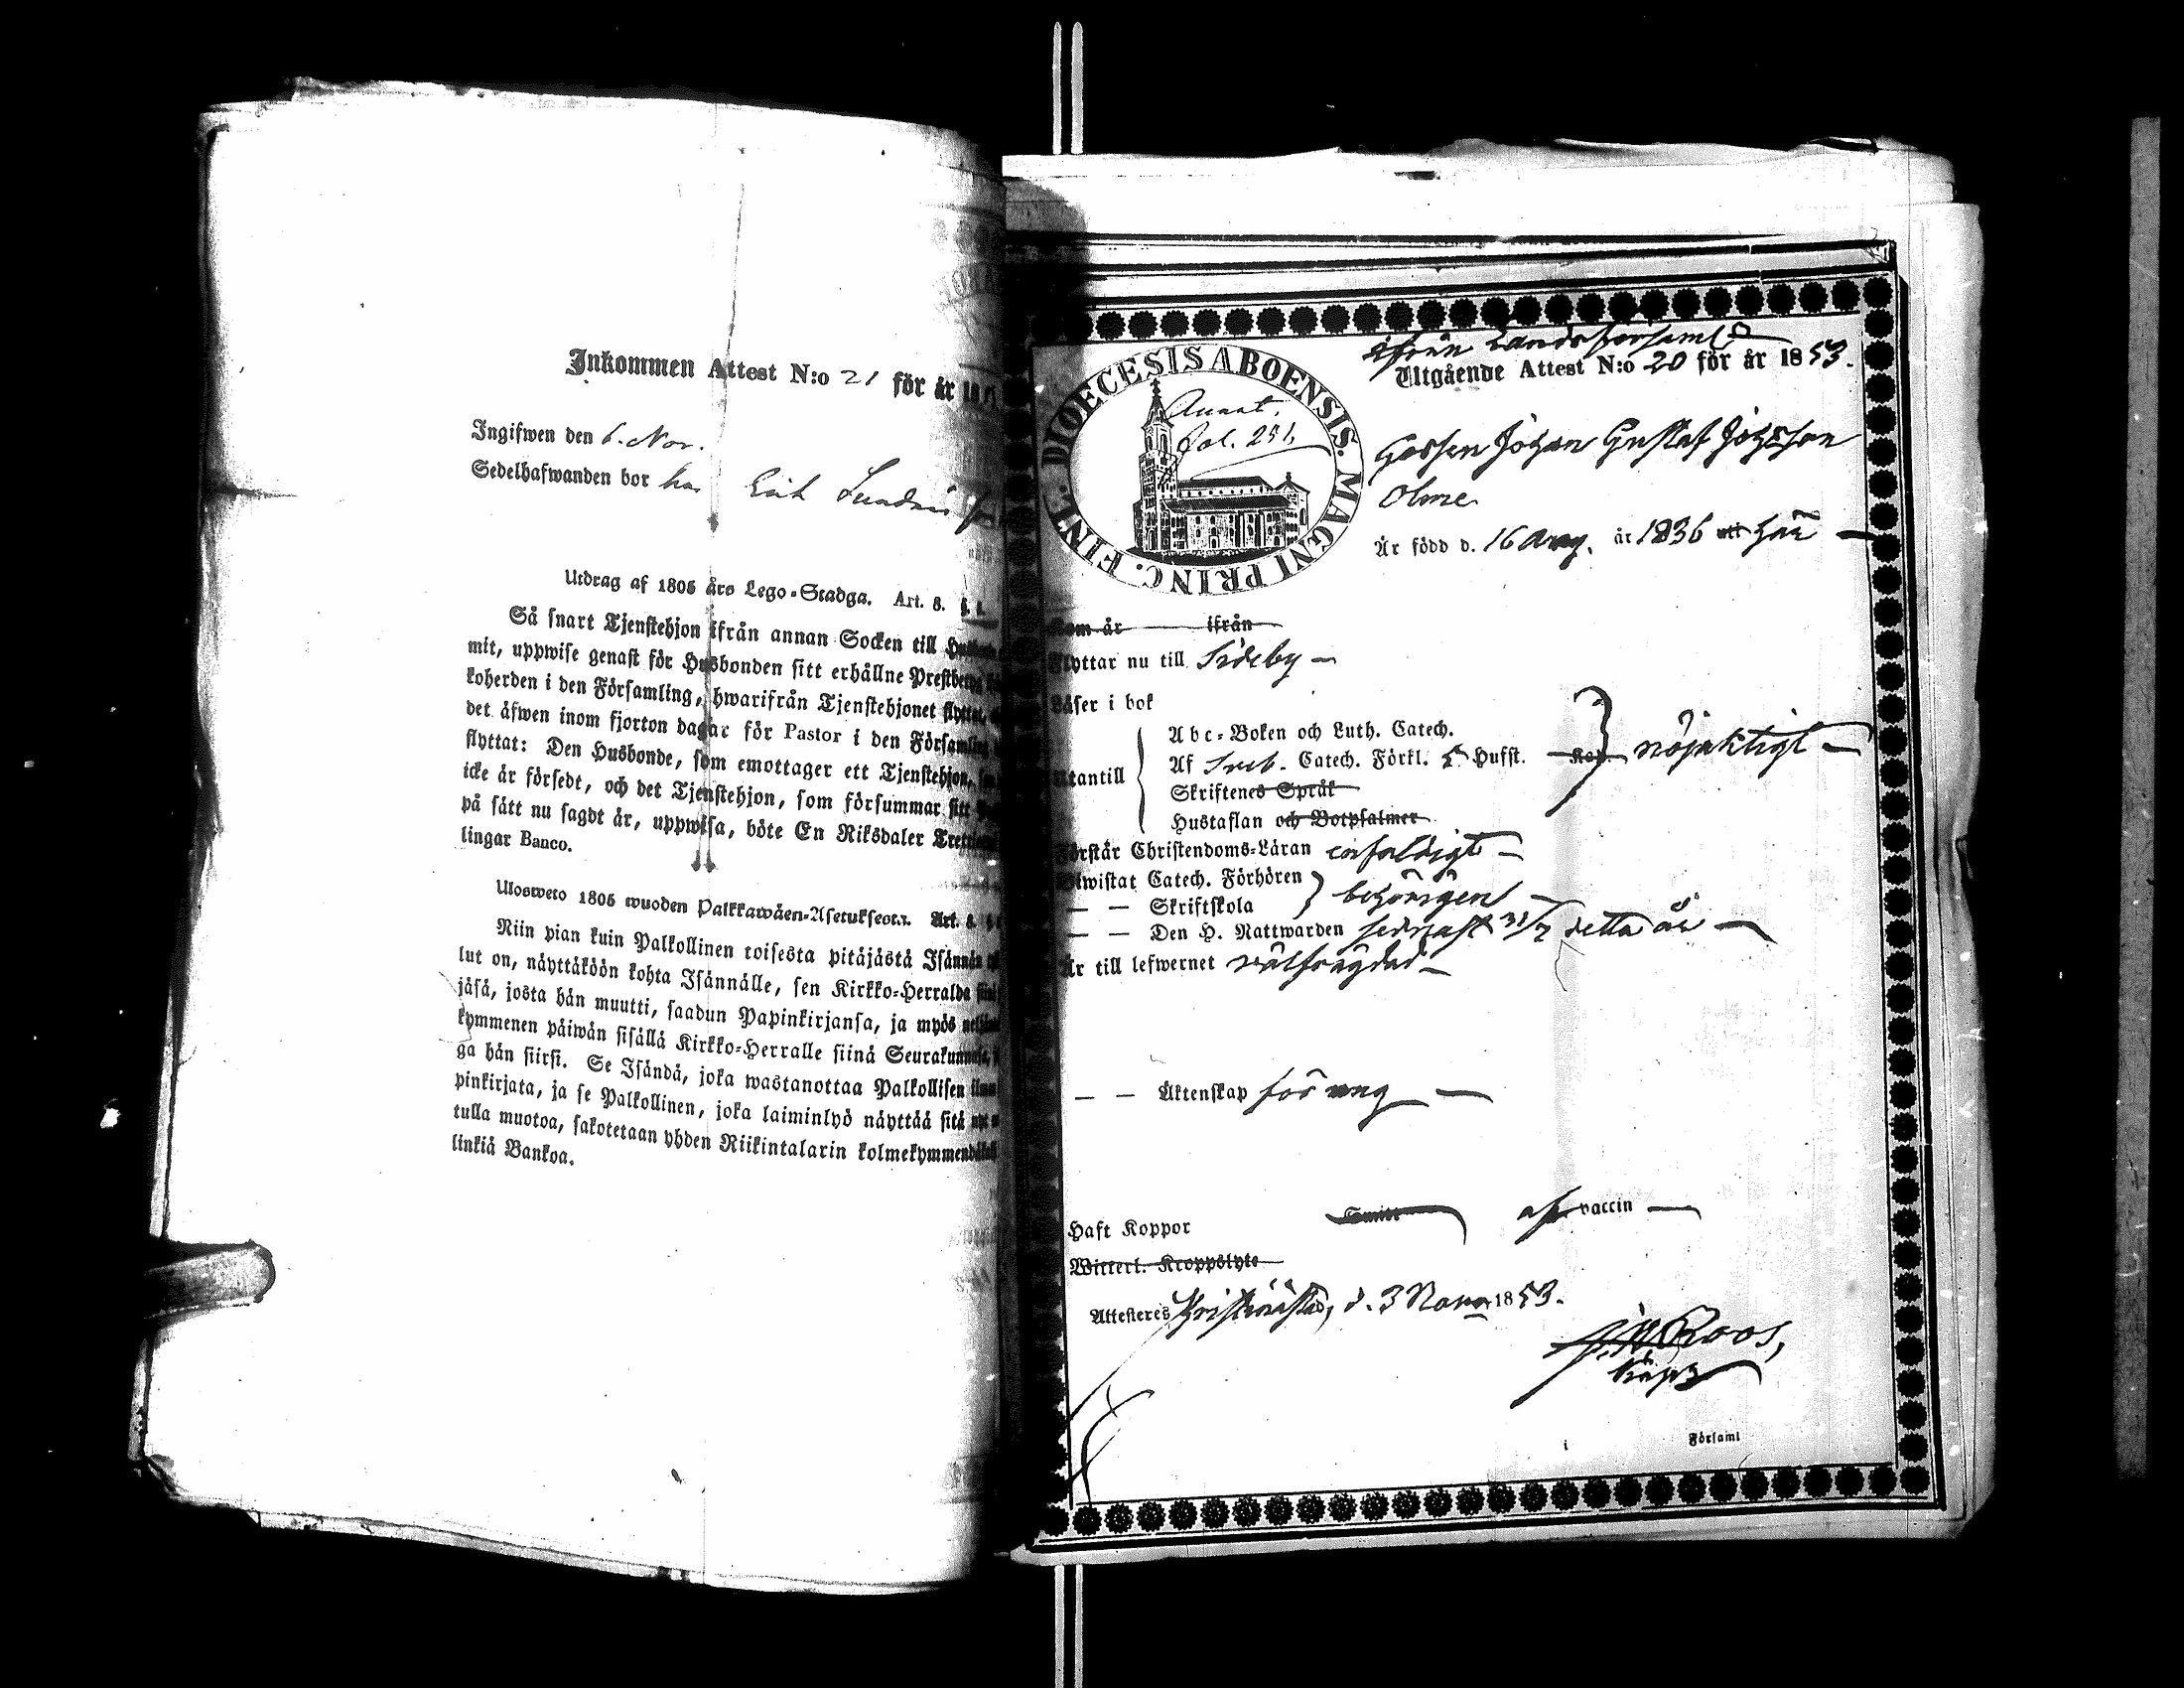 Inkommen Attest N:o 21 för år 18
Ingifwen den 6. Nov.
Sedelhafwanden bor hos Erik
Utdrag af 1805 års Lego-Stadga. Art. 8. §.
Så snart Tjenstehjon ifrån annan Socken till
mit, uppwise genast för Husbonden sitt erhållne
koherden i den Församling, hwarifrån Tjenstehjonet
det äfwen inom fjorton dagar för Pastor i den
flyttat: Den Husbonde, som emottager ett Tjenstehjon,
icke är försedt, och det Tjenstehjon, som försummar sitt
på sätt nu sagdt är, uppwisa, böte En Riksdaler
lingar Banco.
Ulosweto 1805 wuoden Palkkawäen-Asetuksesta. Art. 8.
Niin pian kuin Palkollinen toisesta pitäjästä Isännän
lut on, näyttäköön kohta Isännälle, sen Kirkko-Herralda
jäsä, josta hän muutti, saadun Papinkirjansa, ja myös
kymmenen päiwän sisällä Kirkko-Herralle siinä
ga hän siirsi. Se Isändä, joka wastanottaa Palkollisen
pinkirjata, ja se Palkollinen, joka laiminlyö näyttää sitä
tulla muotoa, sakotetaan yhden Riikintalarin
linkiä Bankoa.
ifrån Landsförsaml.
DIOECESIS ABOENSIS. MAGNI PRINC. FINL.
Annot.
Fol. 251.
Utgående Attest N:o 20 för år 1853.
Gossen Johan Gustaf Johsson
Olme
Är född d. 16 Aug. år 1836 här
Kom år ifrån
Flyttar nu till Sideby
Läser i bok
Utantill
Abc-Boken och Luth. Catech.
Af Sveb. Catech. Förkl. 5 Hufst. Kap. nöjaktigt
Skriftenes Språk
Hustaflan och Botpsalmer
Förstår Christendoms-Läran enfaldigt
Biwistat Catech. Förhören
— — Skriftskola behörigen
— — Den H. Nattwarden sednast 31/7 detta år
Är till lefwernet välfrägdad
— — Äktenskap för ung
Haft Koppor Smitt af vaccin
Witterl. Kroppslyte
Attesteres Christinestad, d. 3 Nov. 1853.
Roos,
Kapl
i Församl